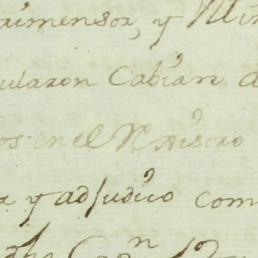 rimensor, y Min
ularon Cabian d
os en el Rexistro
a y adjudico com
dha Capn